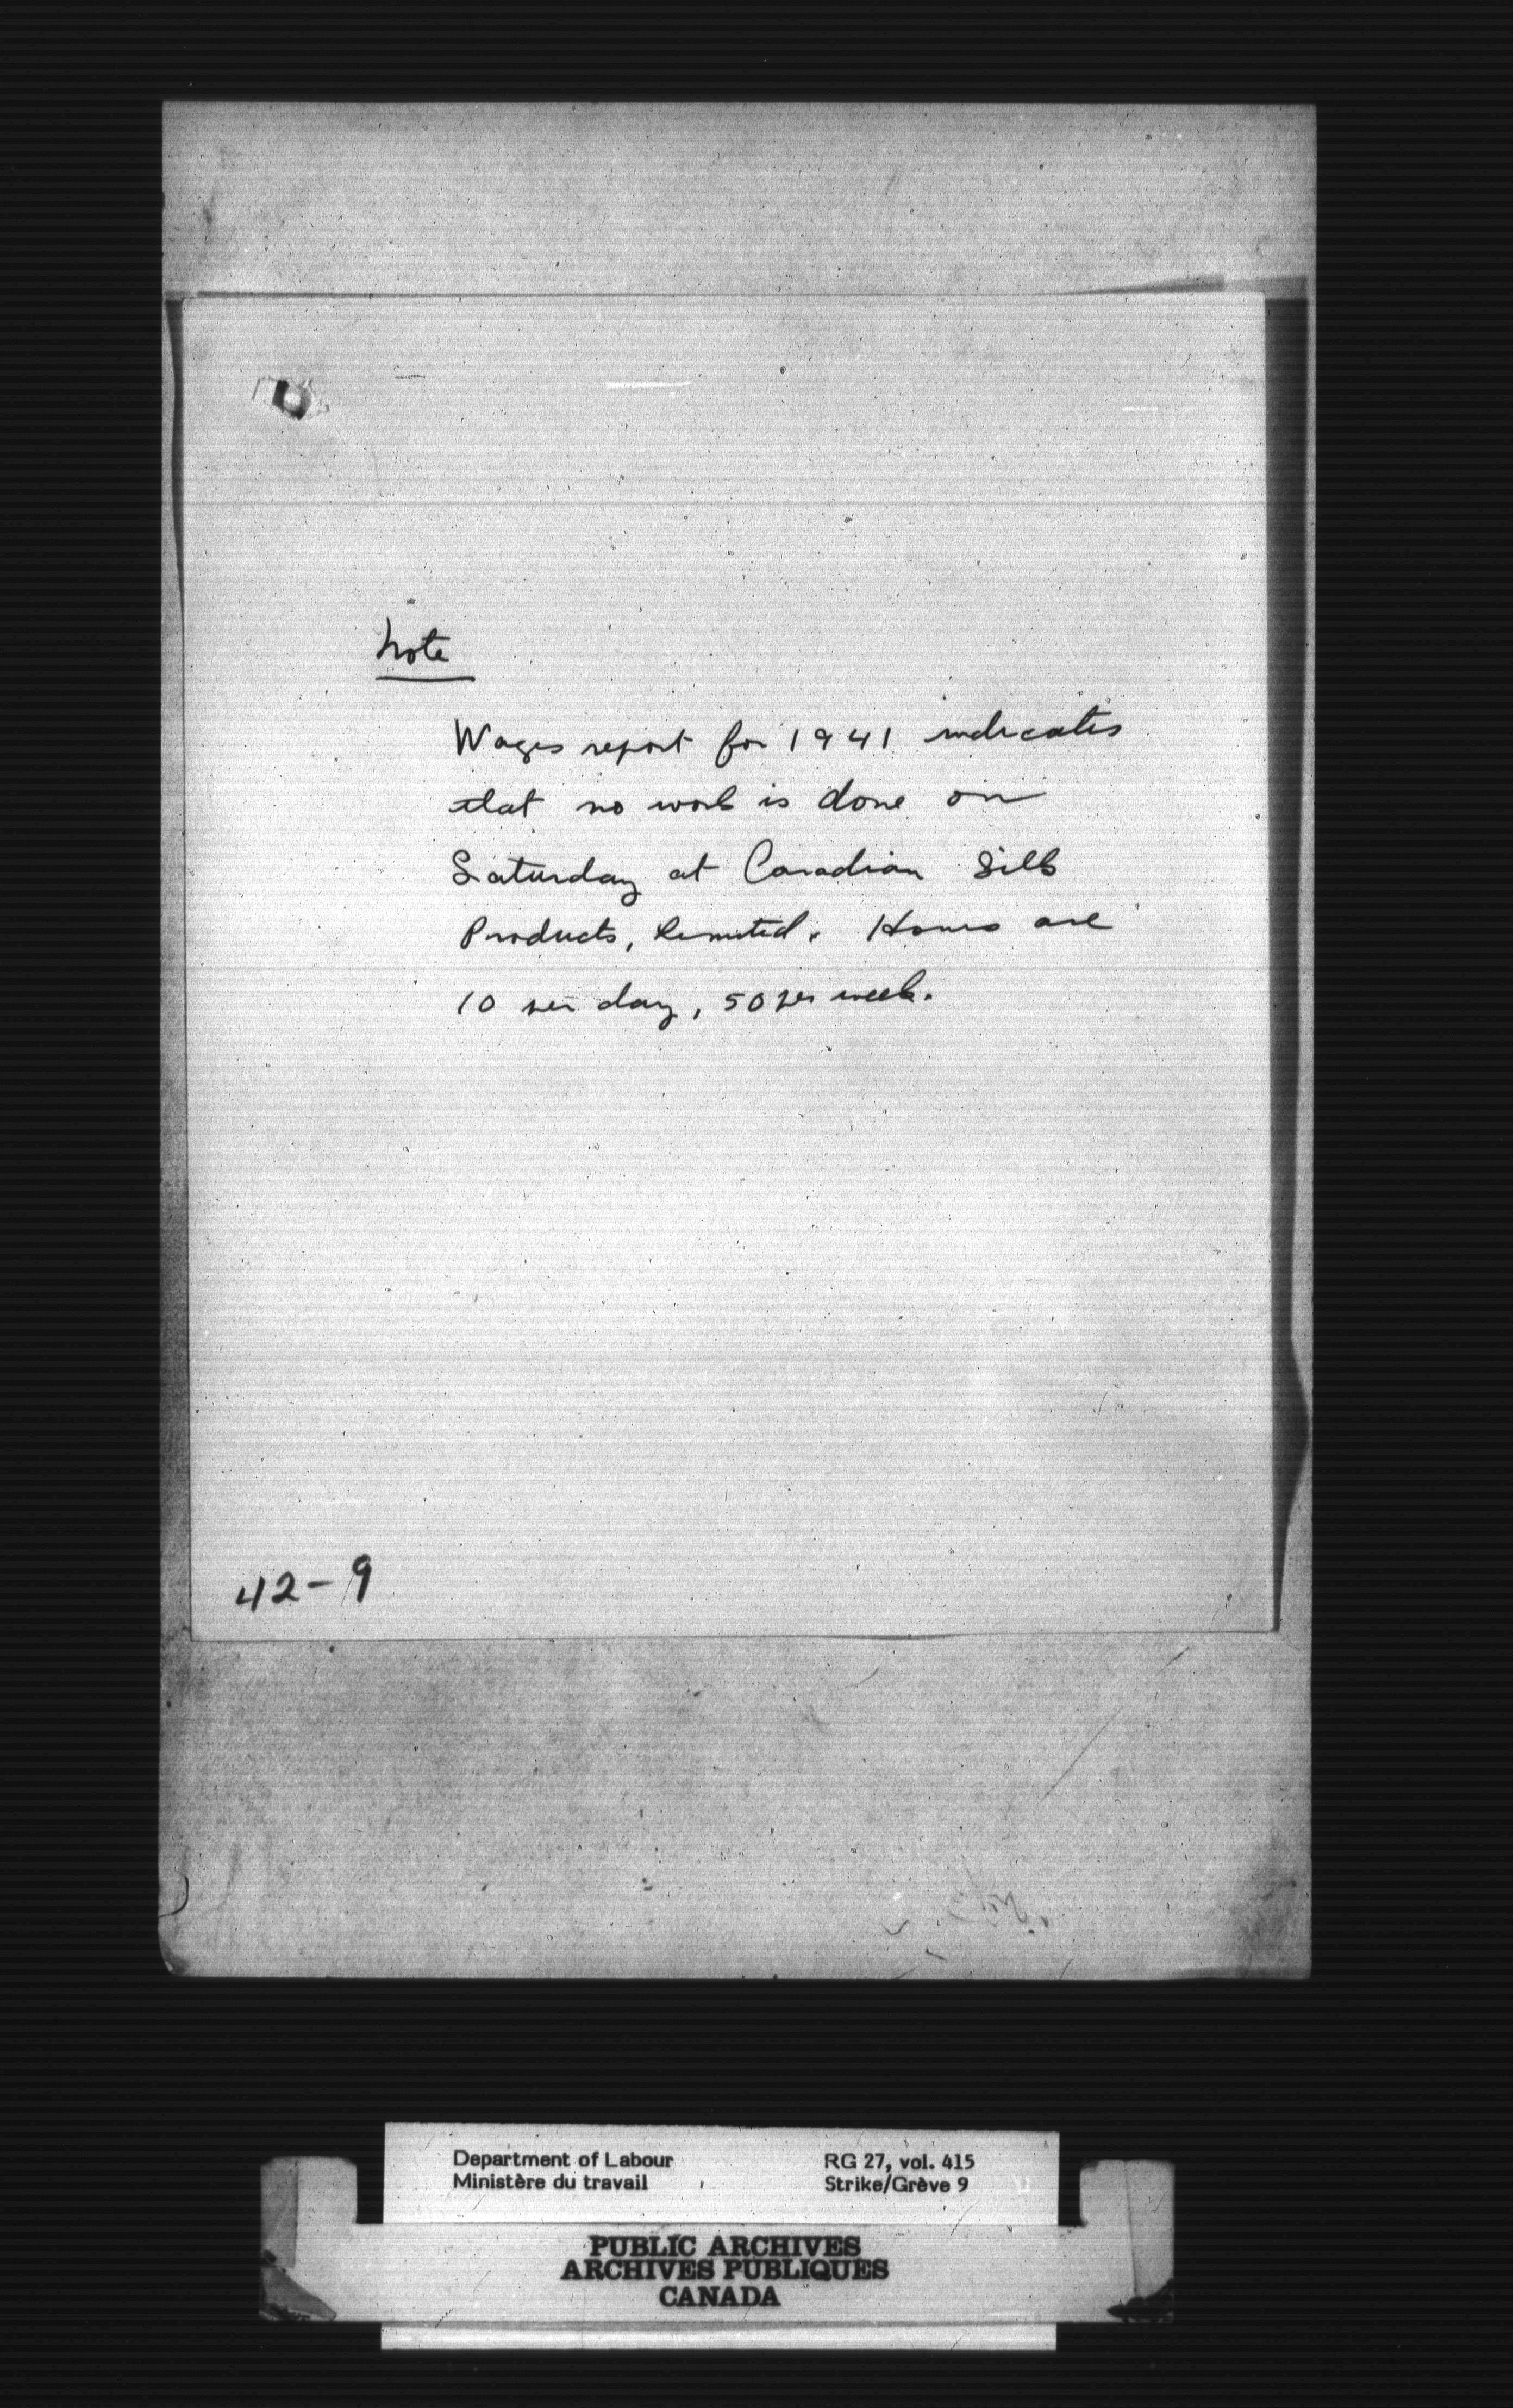 Note
Wages report for 1941 indicates
that no work is done on
Saturday at Canadian Silk
Products, Limited. Hours are
10 per day, 50 per week.
42-9
Department of Labour
Ministère du travail
RG 27, vol. 415
Strike/Grève 9
PUBLIC ARCHIVES
ARCHIVES PUBLIQUES
CANADA